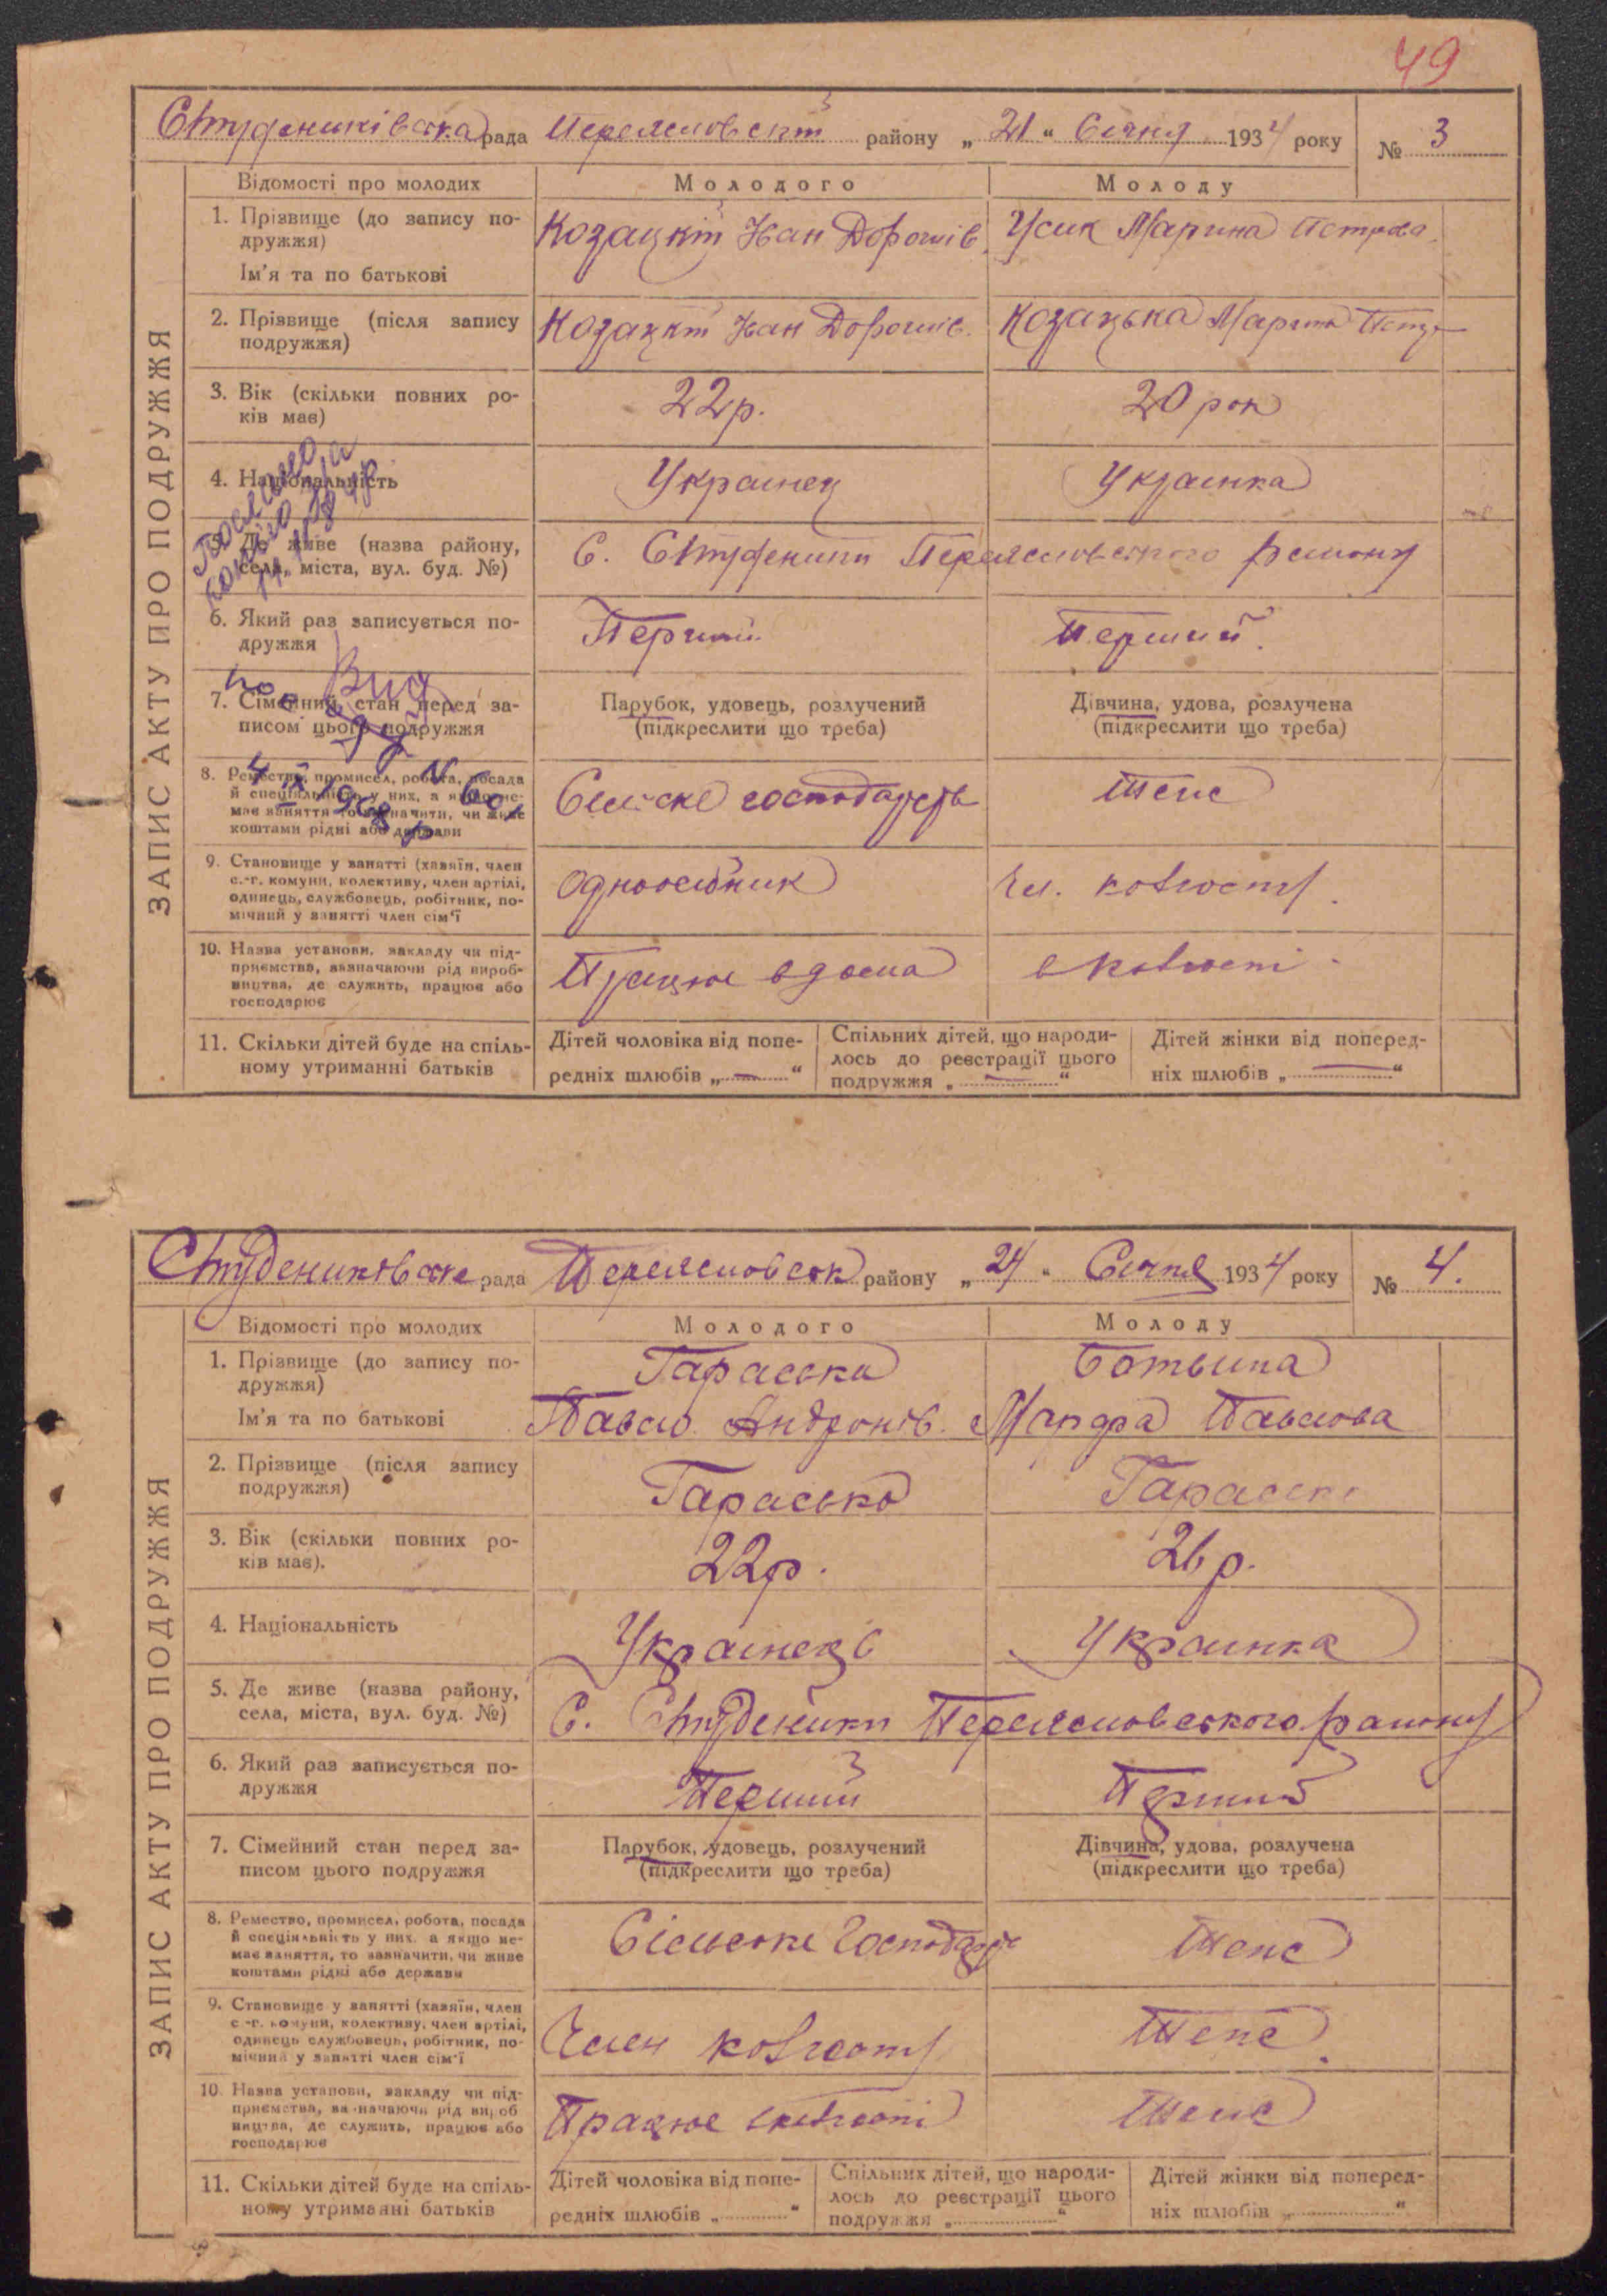 49
Студениківська рада Переяславський району „21“ Січня 1934 року № 3
ЗАПИС АКТУ ПРО ПОДРУЖЖЯ
Відомості про молодих Молодого Молоду
1. Прізвище (до запису по-
дружжя)
Ім'я та по батькові
Козацкій Іван Дорошів. Усик Марина Петрова
2. Прізвище (після запису
подружжя)
Козацкій Іван Дорошів. Козацька Марина
3. Вік (скільки повних ро-
ків має)
22р. 20 рок
4. Національність
Украинец Украинка
5. Де живе (назва району,
села, міста, вул. буд. №)
С. Студеники Переяславського району
6. Який раз записується по-
дружжя
Перший Перший.
7. Сімейний стан перед за-
писом цього подружжя
Парубок, удовець, розлучений
(підкреслити що треба)
Дівчина, удова, розлучена
(підкреслити що треба)
8. Ремество, промисел, робота, посада
й спеціальність у них, а якщо не-
має заняття то зазначити, чи живе
коштами рідні або держави
4 IX 1968 р
Сельське господарств Теж
9. Становище у занятті (хазяїн, член
с.-г. комуни, колективу, член артілі,
одинець, службовець, робітник, по-
мічний у занятті член сім'ї
Одноосібник Чл. колгоспу.
10. Назва установи, закладу чи під-
приємства, зазначаючи рід вироб-
ництва, де служить, працює або
господарює
Працює вдома в колгоспі
11. Скільки дітей буде на спіль-
ному утриманні батьків
Дітей чоловіка від попе-
редніх шлюбів „—“
Спільних дітей, що народи-
лось до реєстрації цього
подружжя „—“
Дітей жінки від поперед-
ніх шлюбів „—“
Студениківська рада Переяславськ району „24“ Січня 1934 року № 4.
ЗАПИС АКТУ ПРО ПОДРУЖЖЯ
Відомості про молодих Молодого Молоду
1. Прізвище (до запису по-
дружжя)
Ім'я та по батькові
Гараська Ботвина
Павло Андронів. Марфа Павлова
2. Прізвище (після запису
подружжя)
Гарасько Гарасько
3. Вік (скільки повних ро-
ків має).
22р. 26р.
4. Національність
Украинець Украинка
5. Де живе (назва району,
села, міста, вул. буд. №)
С. Студеники Переяславського району
6. Який раз записується по-
дружжя
Перший Перший
7. Сімейний стан перед за-
писом цього подружжя
Парубок, удовець, розлучений
(підкреслити що треба)
Дівчина, удова, розлучена
(підкреслити що треба)
8. Ремество, промисел, робота, посада
й спеціальність у них, а якщо не-
має заняття, то зазначити, чи живе
коштами рідні або держави
Сільське Господар Теж
9. Становище у занятті (хазяїн, член
с.-г. комуни, колективу, член артілі,
одинець службовець, робітник, по-
мічний у занятті член сім'ї
Член колгоспу Теж.
10. Назва установи, закладу чи під-
приємства, зазначаючи рід вироб
ництва, де служить, працює або
господарює
Працює в колгоспі Теж
11. Скільки дітей буде на спіль-
ному утриманні батьків
Дітей чоловіка від попе-
редніх шлюбів „ “
Спільних дітей, що народи-
лось до реєстрації цього
подружжя „ “
Дітей жінки від поперед-
ніх шлюбів „ “